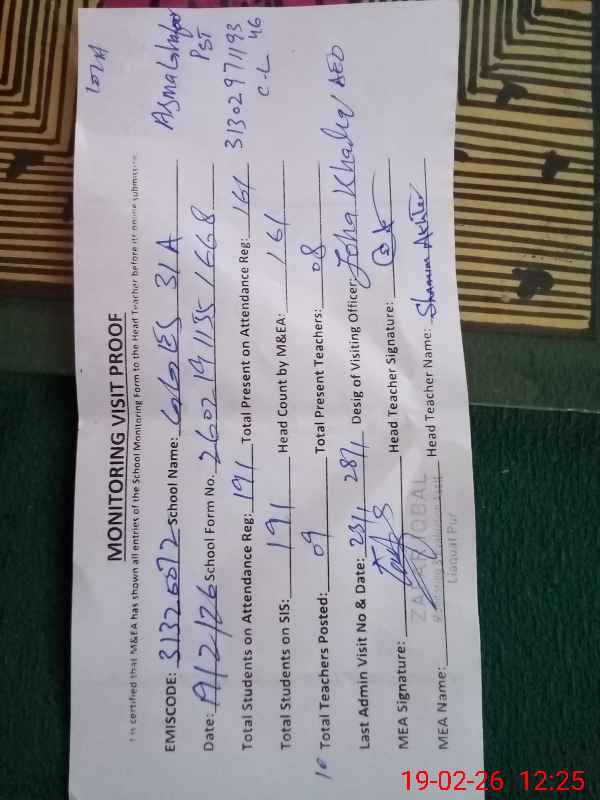 MONITORING VISIT PROOF
It is certified that M&EA has shown all entries of the School Monitoring Form to the Head Teacher before its online submission.
EMISCODE: 31326072 School Name: GGES 31 A
Date: 19/2/26 School Form No. 26021911551668
Total Students on Attendance Reg: 191 Total Present on Attendance Reg: 161
Total Students on SIS: 191 Head Count by M&EA: 161
Total Teachers Posted: 09 Total Present Teachers: 08
Last Admin Visit No & Date: 23/1 28/1 Desig of Visiting Officer: AEO
MEA Signature: Head Teacher Signature:
MEA Name: Head Teacher Name: Shamim Akhter
ZAFAR IQBAL
Liaqat Pur
Asma Ghafoor
PST
31302971193
46
C.L
19-02-26 12:25